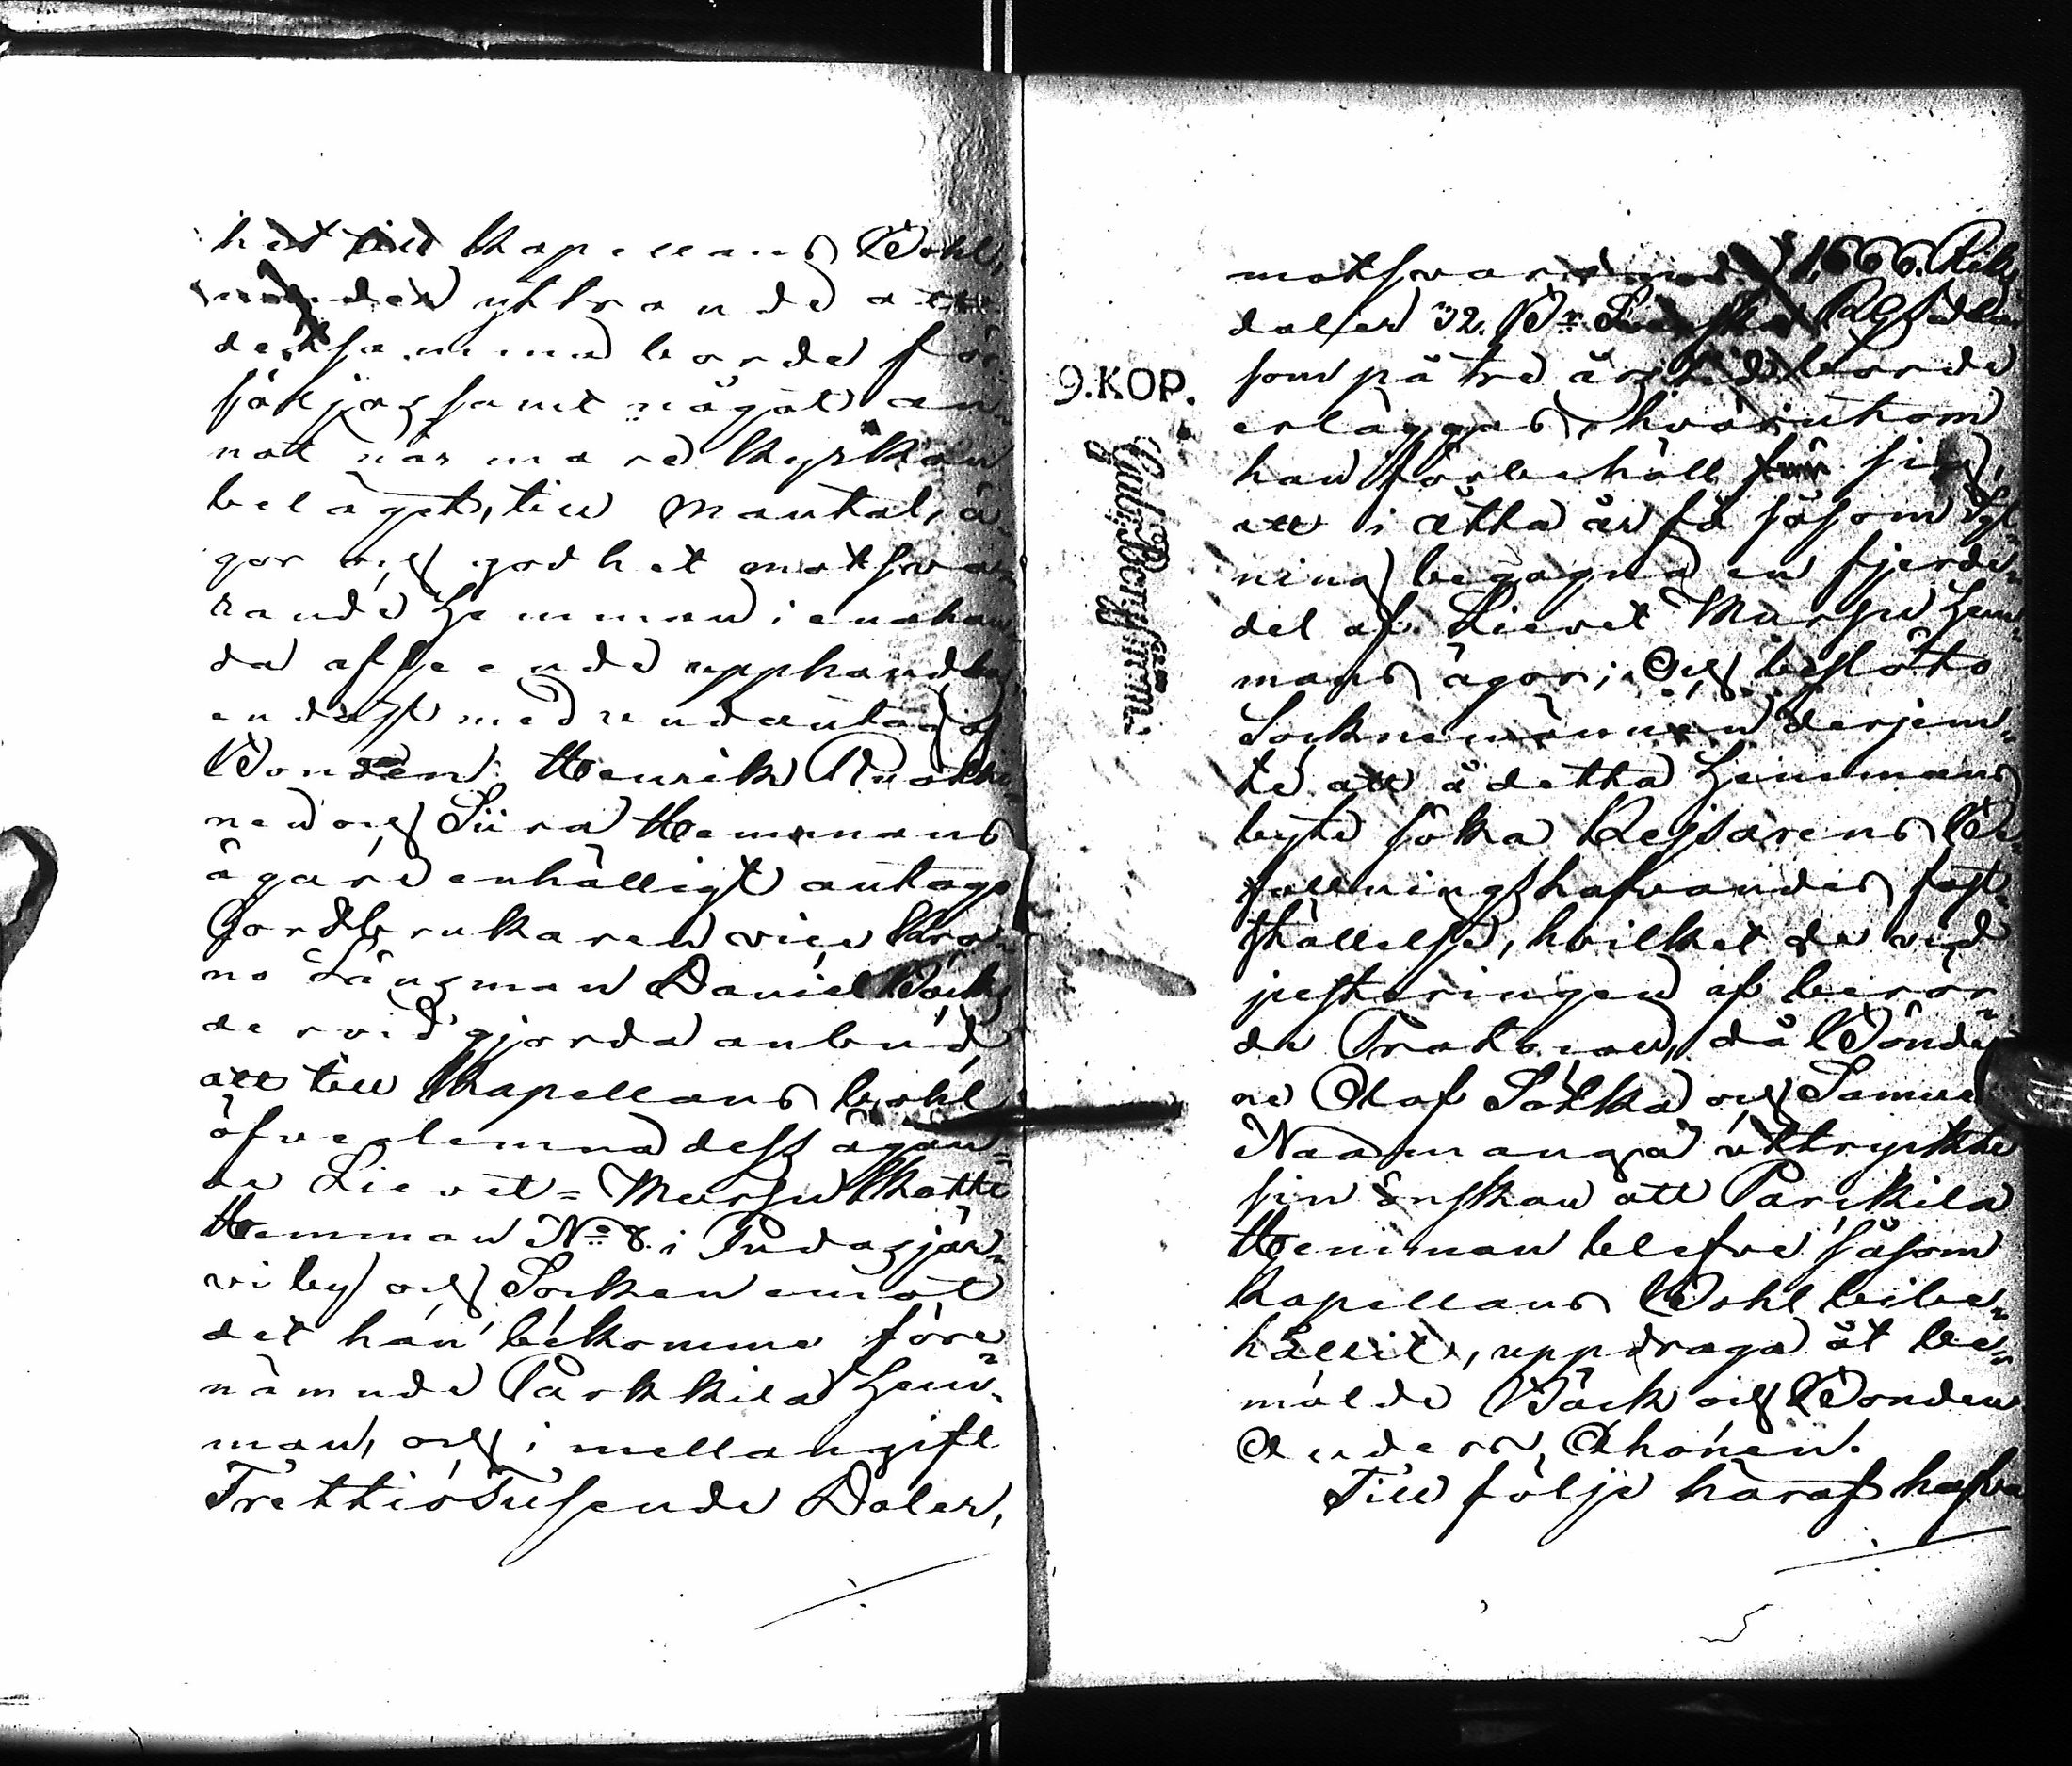 het till Kapellans Bohl,
under yttrande att
detsamma borde för-
säljas samt något an-
nat närmare Kyrkan
beläget, till Mantal, ä-
gor och godhet motsva-
rande Hemman i enahan-
da afseende upphandlas,
endast med undantag af
Bonden Henrik Ruokai-
nen och Siira Hemmans
ägare enhälligt antaga
Gordbrukaren vice Kro-
no Länsman Daniel Bäcks
dervid gjorda anbud,
att till Kapellans bohl
öfverlemna dess ägan-
de Lievet-Mursu Skatte
Hemman No 8. i Pudasjär-
vi by och Socken emot
det han bekomme före-
nämnde Parkkila Hem-
man, och i mellangift
TrettioTusende Daler,
motsvarande 1,666. Riks-
daler 32. Sr Svenska Rgsedlar
som på tre års tid borde
erläggas, hvarutom
han förbehöll sig,
att i åtta år få såsom Syt-
ning begagna en fjerde-
del af Lievet Mursu Hem-
mans ägor; Och beslöto
Socknemännen derjem-
te att å detta Hemmans
byte söka Kejsarens Be-
fallningshafvandes fast-
ställelse, hvilket de vid
justeringen af berör-
de Protocoll, då Bönder-
ne Olaf Sätkä och Samuel
Naamanga uttryckte
sin önskan att Parkkila
Hemman blefve såsom
Kapellans Bohl bibe-
hållit, uppdraga åt be-
mälde Bäck och Bonden
Anders Ahonen.
Till följe häraf hafva
9.KOP.
Carl Bergman